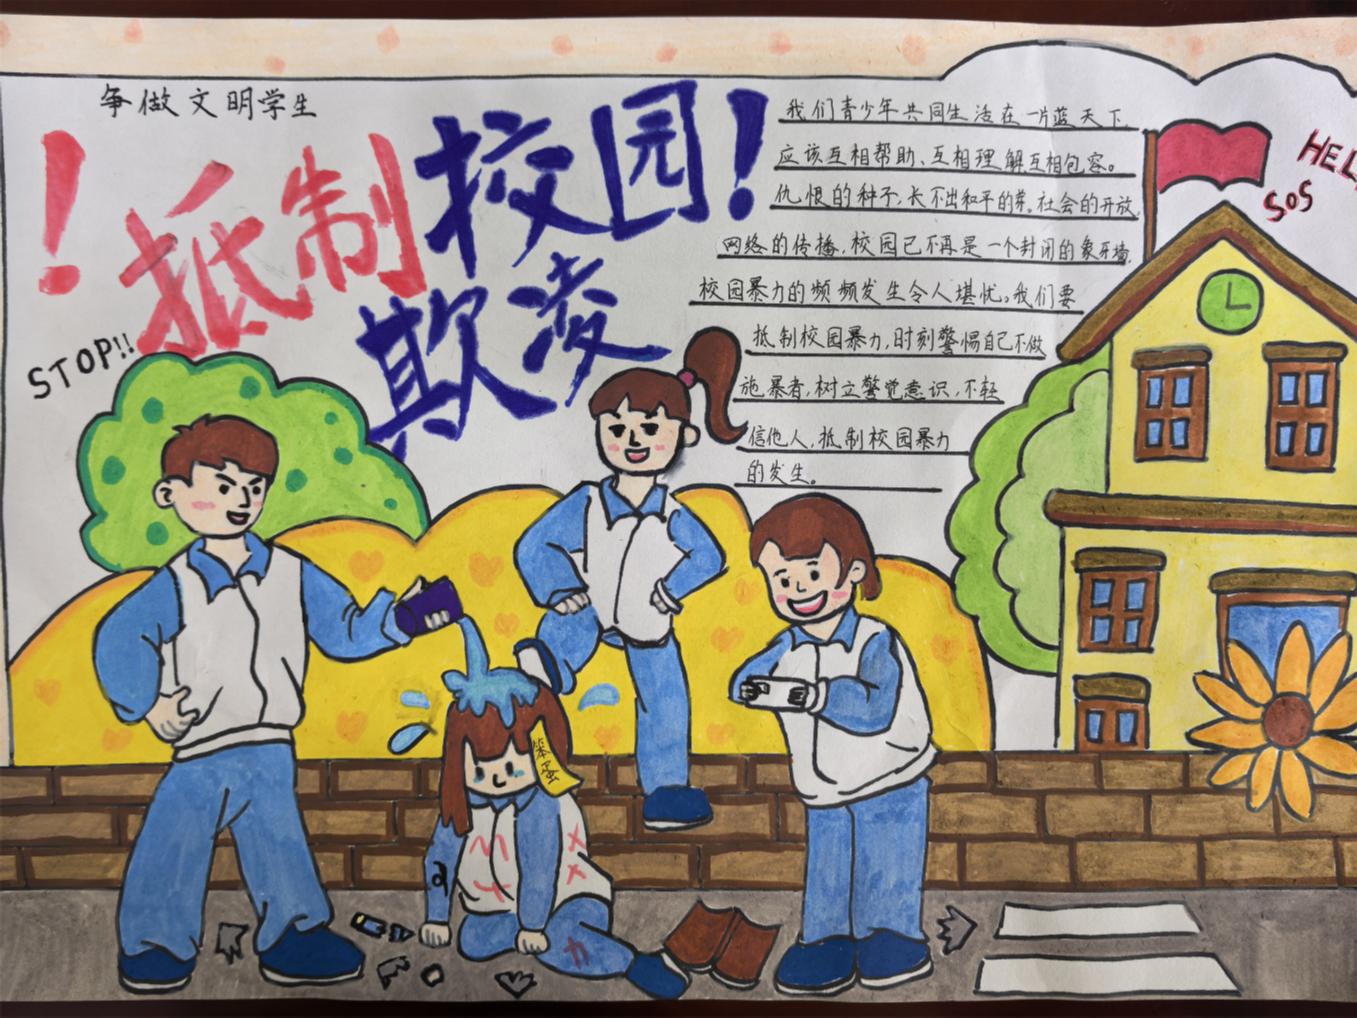 争做文明学生
！抵制校园！
欺凌
STOP!!
我们青少年共同生活在一片蓝天下
应该互相帮助、互相理解互相包容。
仇恨的种子,长不出和平的芽。社会的开放,
网络的传播,校园已不再是一个封闭的象牙墙,
校园暴力的频频发生令人堪忧。我们要
抵制校园暴力,时刻警惕自己不做
施暴者,树立警觉意识,不轻
信他人,抵制校园暴力
的发生。
SOS
笨蛋